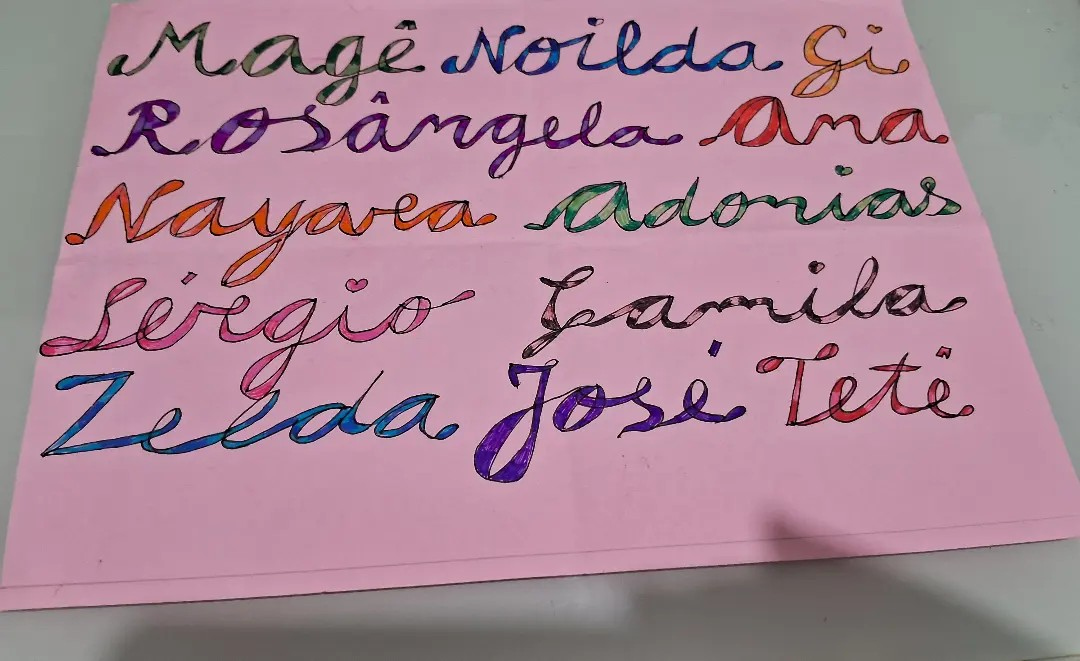 Magê Noilda Gi
Rosângela Ana
Nayara Adonias
Sérgio Camila
Zelda José Tetê